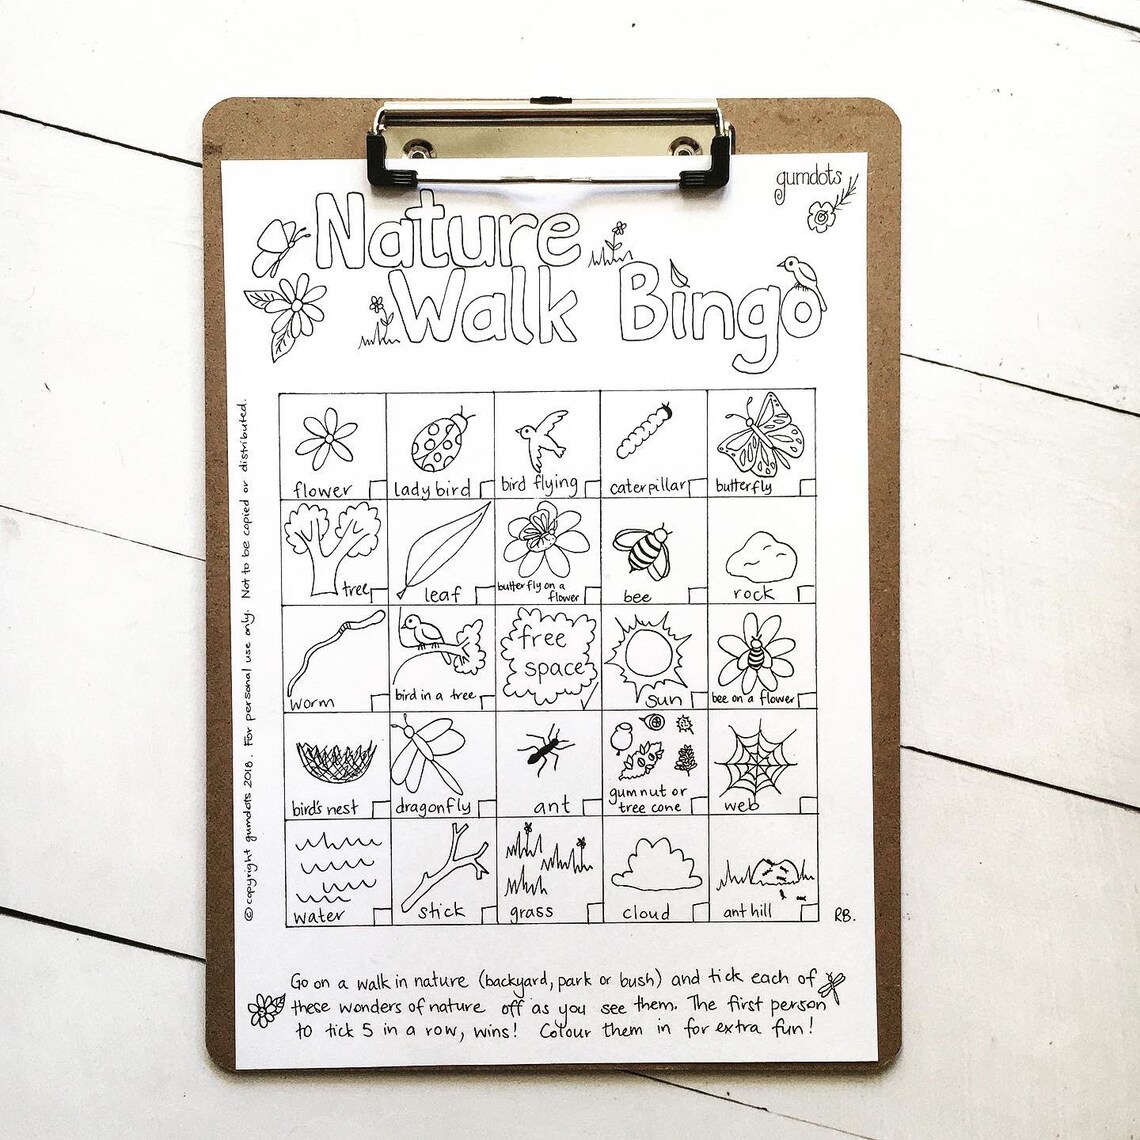 gumdots
Nature
Walk Bingo
flower
ladybird
bird flying
caterpillar
butterfly
tree
leaf
butterfly on a
flower
bee
rock
worm
bird in a tree
free
space
sun
bee on a flower
bird's nest
dragonfly
ant
gumnut or
tree cone
web
water
stick
grass
cloud
ant hill
RB.
© copyright gumdots 2018. For personal use only. Not to be copied or distributed.
Go on a walk in nature (backyard, park or bush) and tick each of
these wonders of nature off as you see them. The first person
to tick 5 in a row, wins! Colour them in for extra fun!